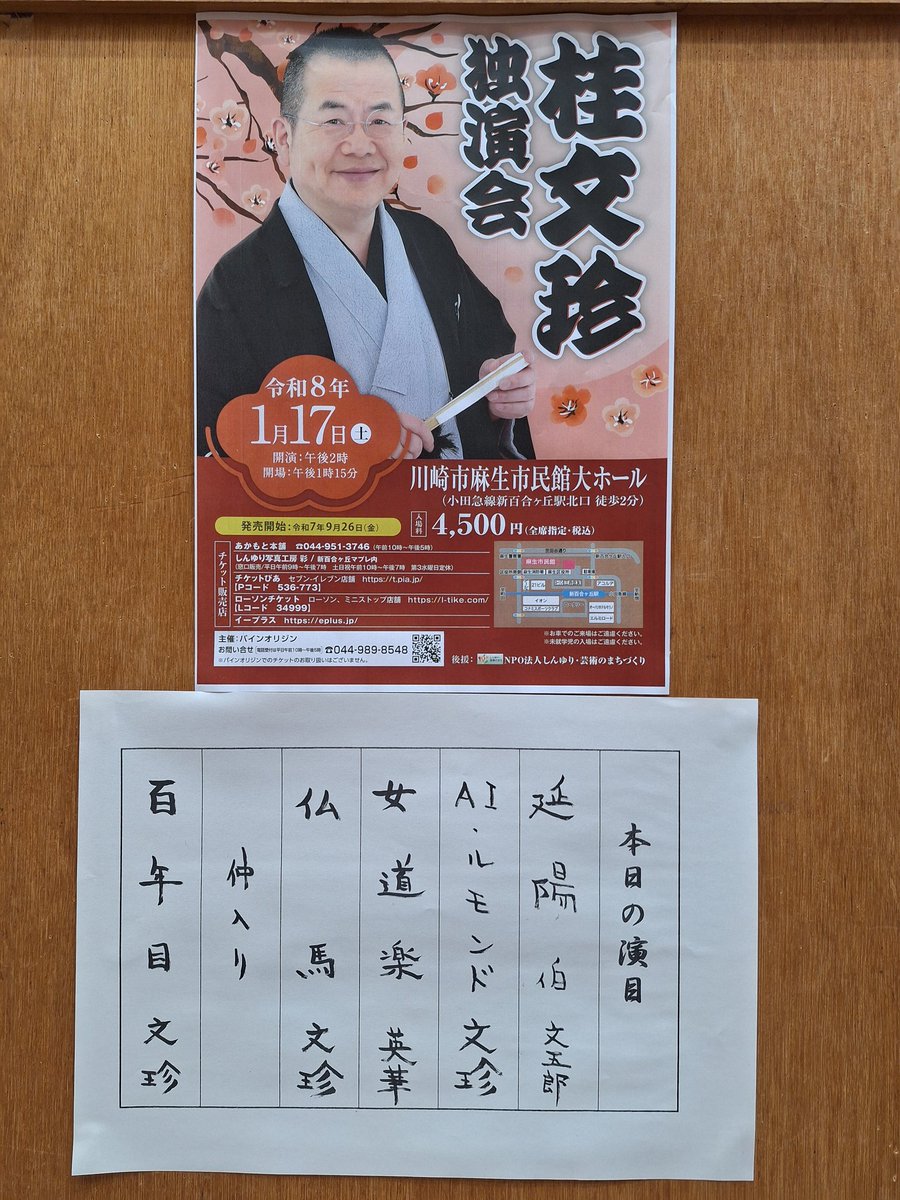 桂文珍
独演会
令和8年
1月17日(土)
開演:午後2時
開場:午後1時15分
川崎市麻生市民館大ホール
(小田急線新百合ヶ丘駅北口 徒歩2分)
発売開始:令和7年9月26日(金)
入場料 4,500円(全席指定・税込)
チケット販売店
あかもと本舗 ☎044-951-3746 (午前10時〜午後5時)
しんゆり写真工房 彩 / 新百合ヶ丘マプレ内
(窓口販売/平日午前9時〜午後7時 土日祝午前10時〜午後7時 第3水曜日定休)
チケットぴあ セブン-イレブン店舗 https://t.pia.jp/
[Pコード 536-773]
ローソンチケット ローソン、ミニストップ店舗 https://l-tike.com/
[Lコード 34999]
イープラス https://eplus.jp/
麻生市民館
新百合ヶ丘駅
イオン
※お車でのご来場はご遠慮ください。
※未就学児の入場はご遠慮ください。
主催:パインオリジン
お問い合せ 電話受付は平日午前10時〜午後5時 ☎044-989-8548
※パインオリジンでのチケットのお取り扱いはございません。
後援: NPO法人しんゆり・芸術のまちづくり
本日の演目
延陽伯 文五郎
AI・ルモンド 文珍
女道楽 英華
仏馬 文珍
仲入り
百年目 文珍